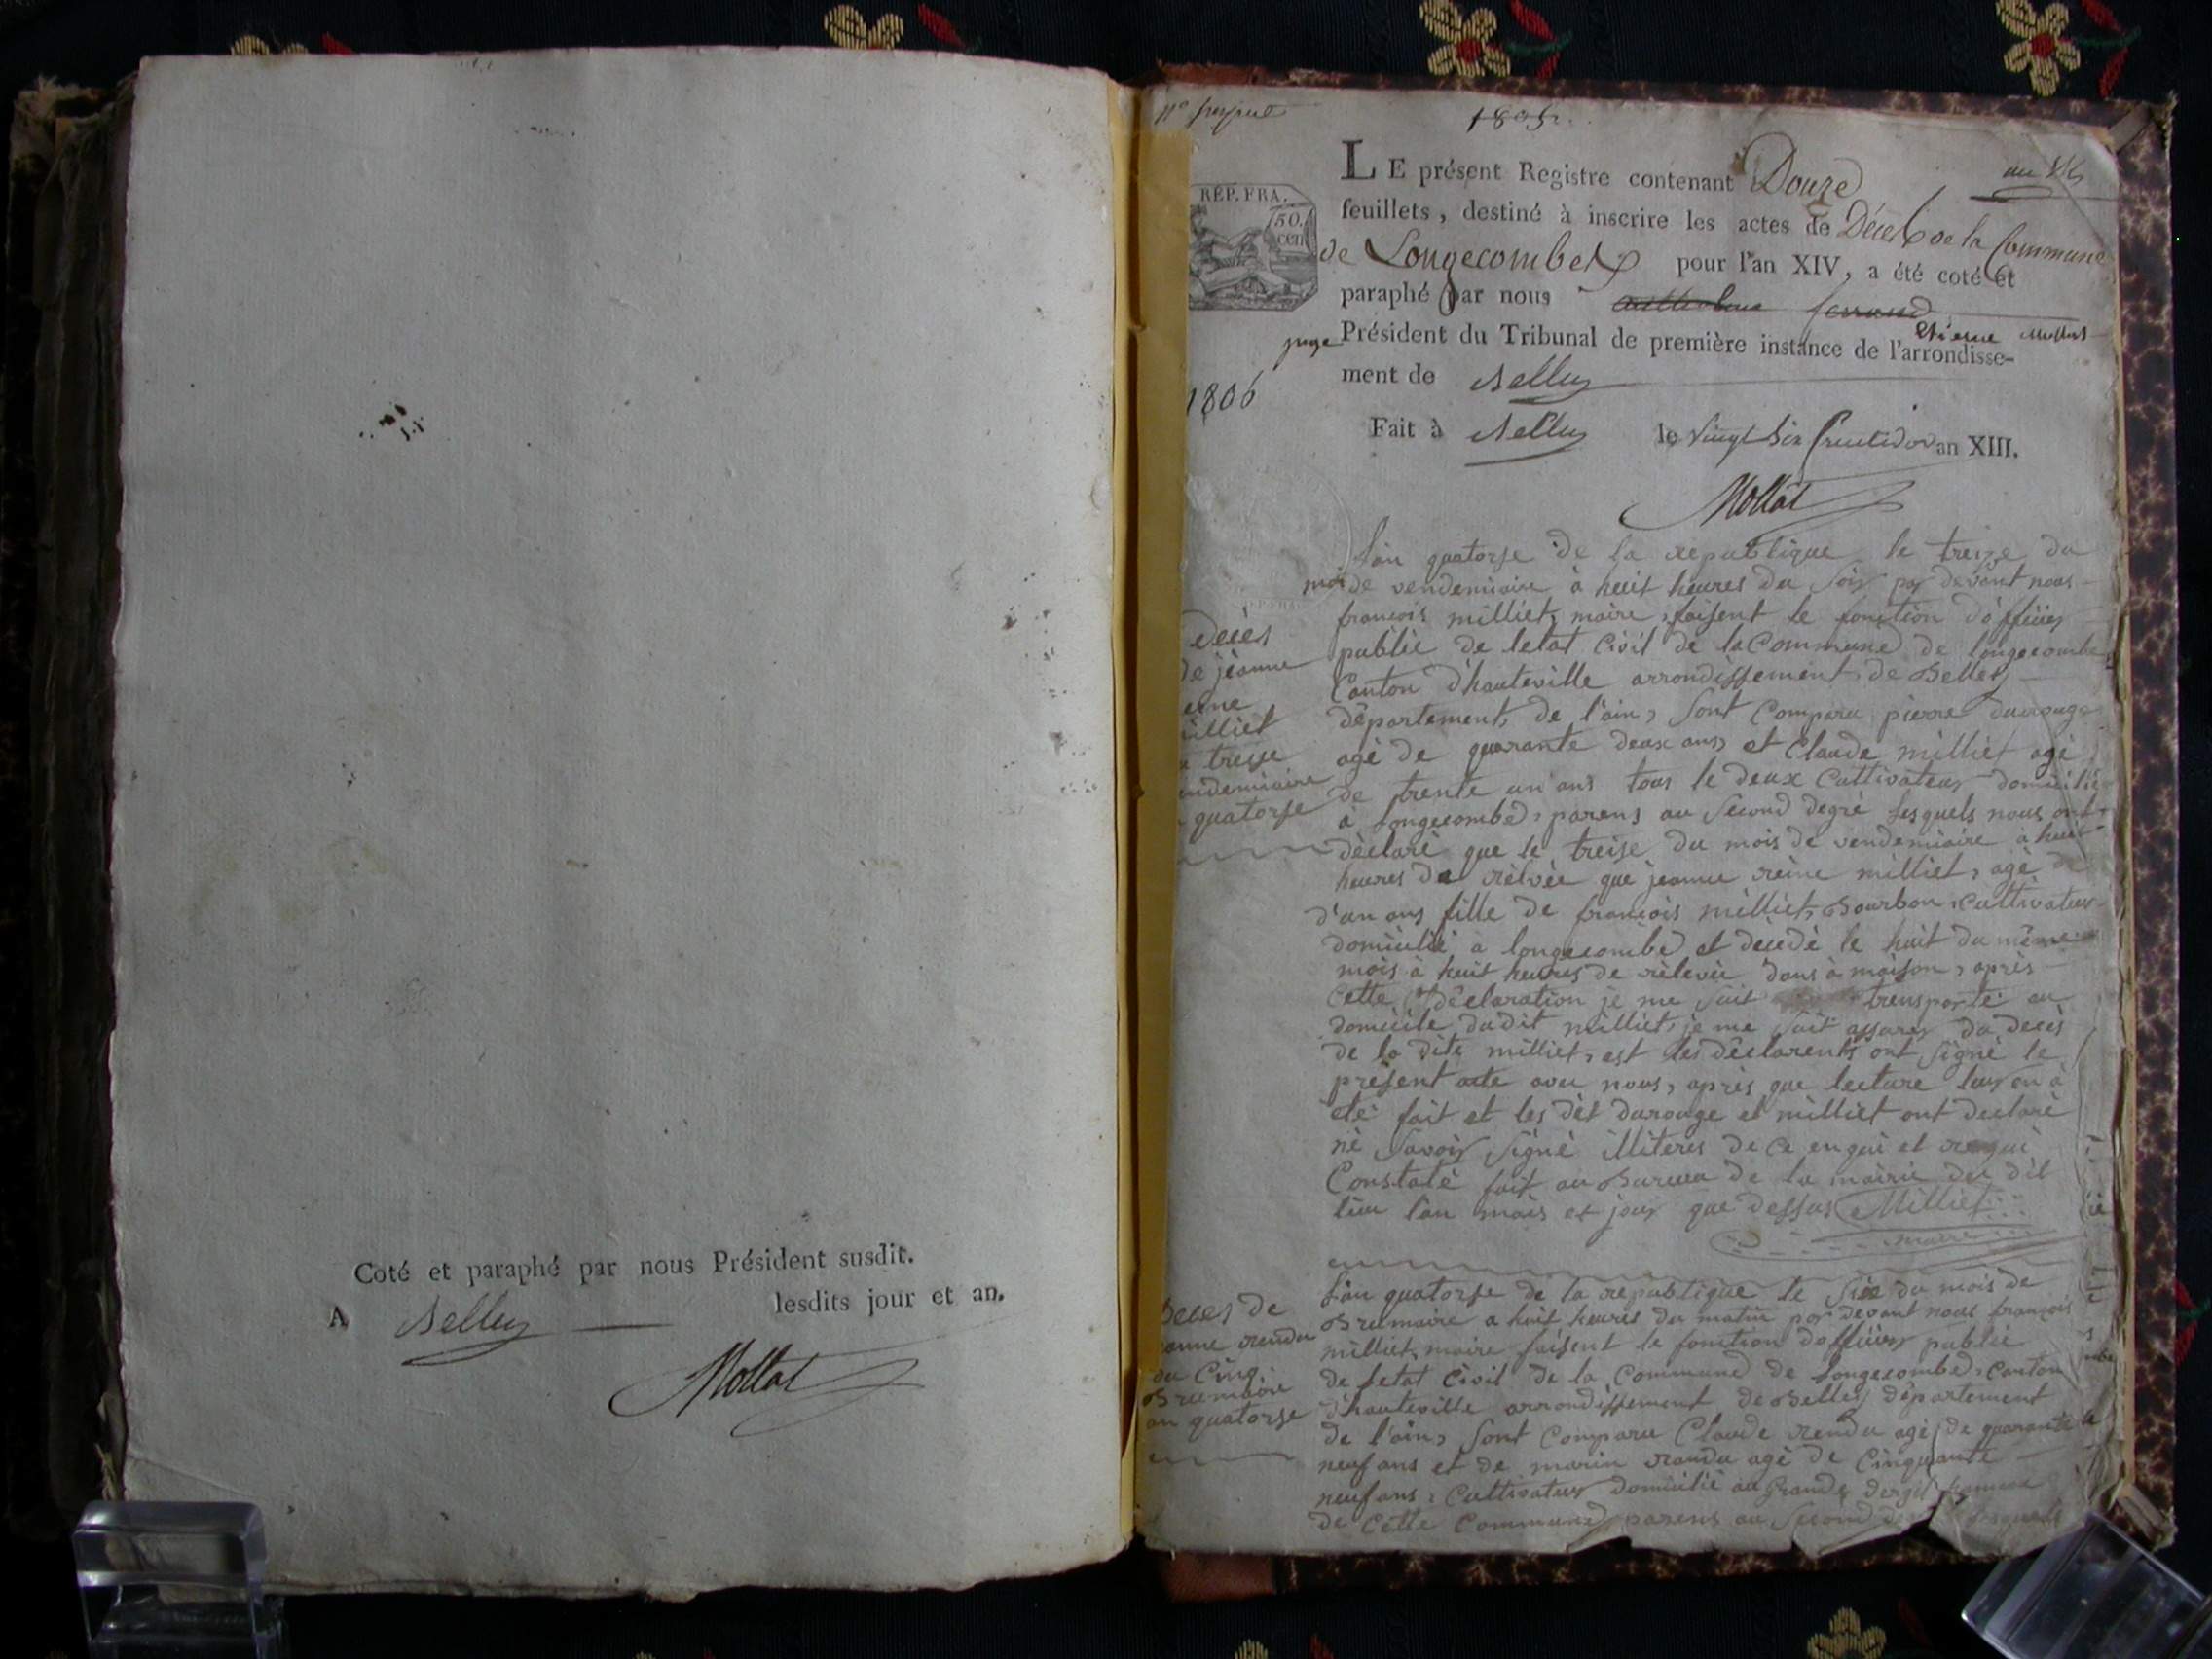 Coté et paraphé par nous Président susdit.
A Belley lesdits jour et an.
Mollat
nº premier
1805
an 14
LE présent Registre contenant Douze
feuillets, destiné à inscrire les actes de Décès de la Commune
de Longecombe pour l'an XIV, a été coté et
paraphé par nous
Etienne Mollat
juge Président du Tribunal de première instance de l'arrondisse-
ment de Belley
Fait à Belley le vingt six fructidor an XIII.
Mollat
REP. FRA.
50.
cen
1806
decès
de jéanne
eine
illiet
treise
endemiaire
quatorse
l'an quatorse de la republique le treize du
moi de vendemiaire à huit heures du soir par devant nous
francois milliet, maire, faisent le fonction d'officier
publie de letat Civil de la Commune de longecombe
Canton d'hauteville arrondissement de Belley
département de l'ain, sont Comparu pierre durouge
agé de quarante deux ans et Claude milliet agé
de trente un ans tous le deux Cultivateur domicilié
a longecombe, parens au second degré lesquels nous ont
déclaré que le treise du mois de vendemiaire à huit
heures de rélvée que jeanne reine milliet, agé de
d'un ans fille de francois milliet, Bourbon, Cultivateur
domicilié a longecombe et décédé le huit du même
mois à huit heures de rélevée dans à maison, après
Cette déclaration je me suit transporté au
domicile dudit milliet, je me suit assurer du decès
de la dite milliet, est les déclarents ont signé le
présent acte avec nous, après que lecture leur en à
eté fait et les dit durouge et milliet ont declaré
né savoir signé illiteres de Ce enqui et requi
Constaté fait au Bureau de la mairie du dit
lieu l'an mois et jour que dessus Milliet
maire
Deces de
anne rendu
du Cinq
Brumaire
an quatorse
l'an quatorse de la republique le six du mois de
Brumaire a huit heures du matin par devant nous francois
milliet, maire faisent le fonction d'officier publié
de letat Civil de la Commune de longecombe, Canton
d'hauteville arrondissement de Belley département
de l'ain, sont Comparu Claude rendu agé de quarante
neuf ans et de marin randu agé de Cinquante
neuf ans, Cultivateur domicilié au grand
de Cette Commune, parens au second lesquels